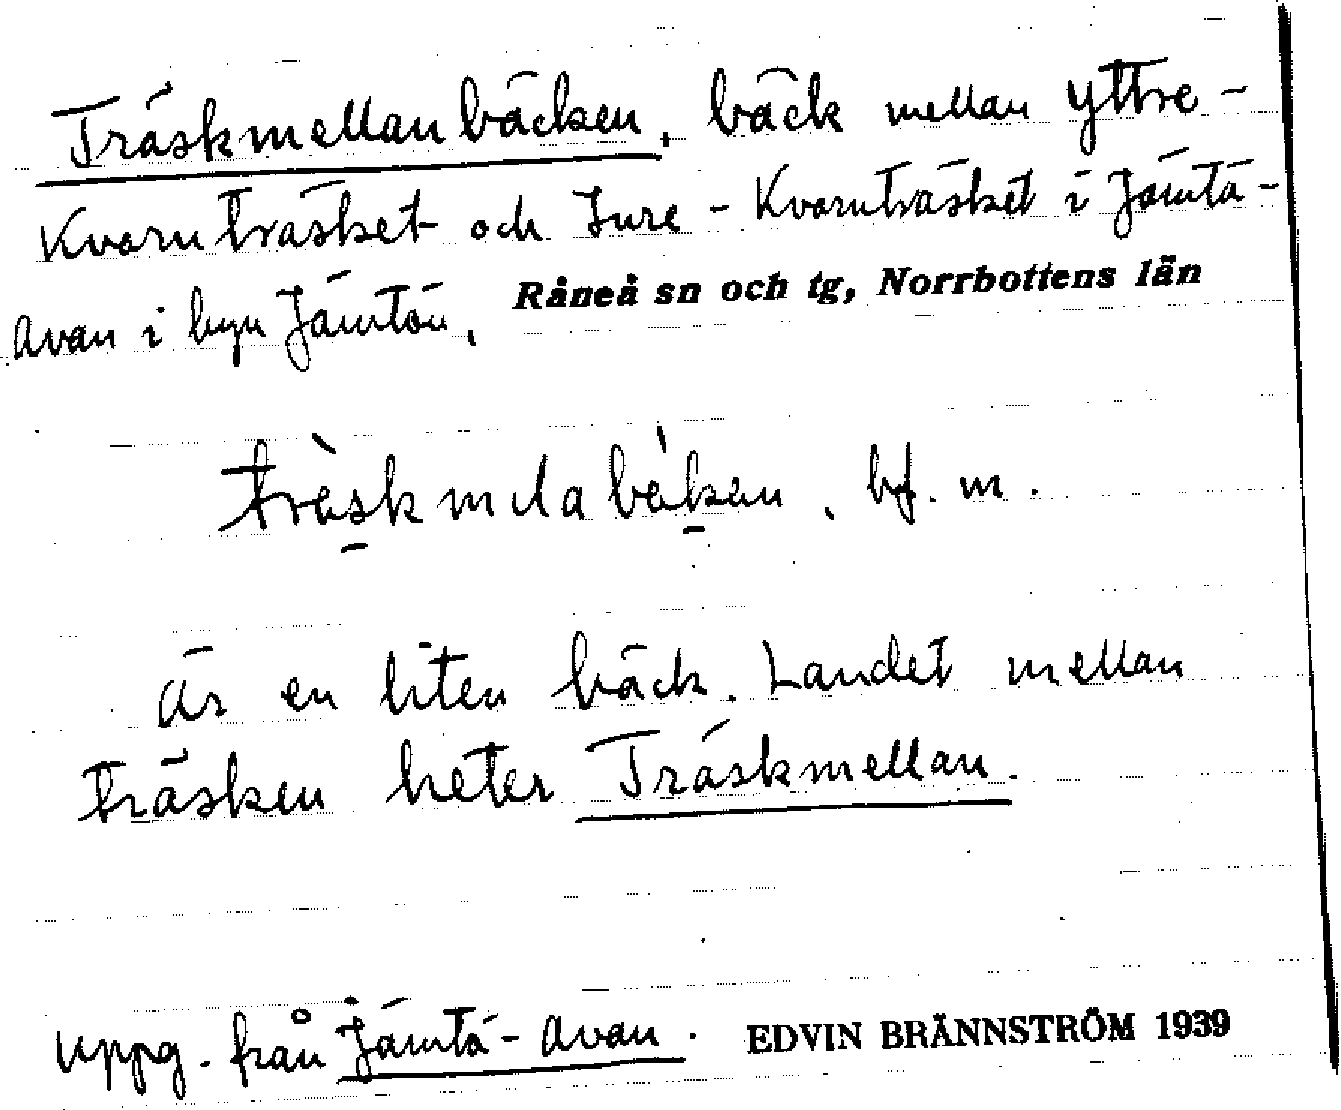 Träskmellanbäcken, bäck mellan Yttre-
Kvarnträsket och Inre-Kvarnträsket i Jämtö-
avan i byn Jämtön, Råneå sn och tg, Norrbottens län
bf. m.
Är en liten bäck. Landet mellan
träsken heter Träskmellan.
Uppg. från Jämtö-avan. EDVIN BRÄNNSTRÖM 1939